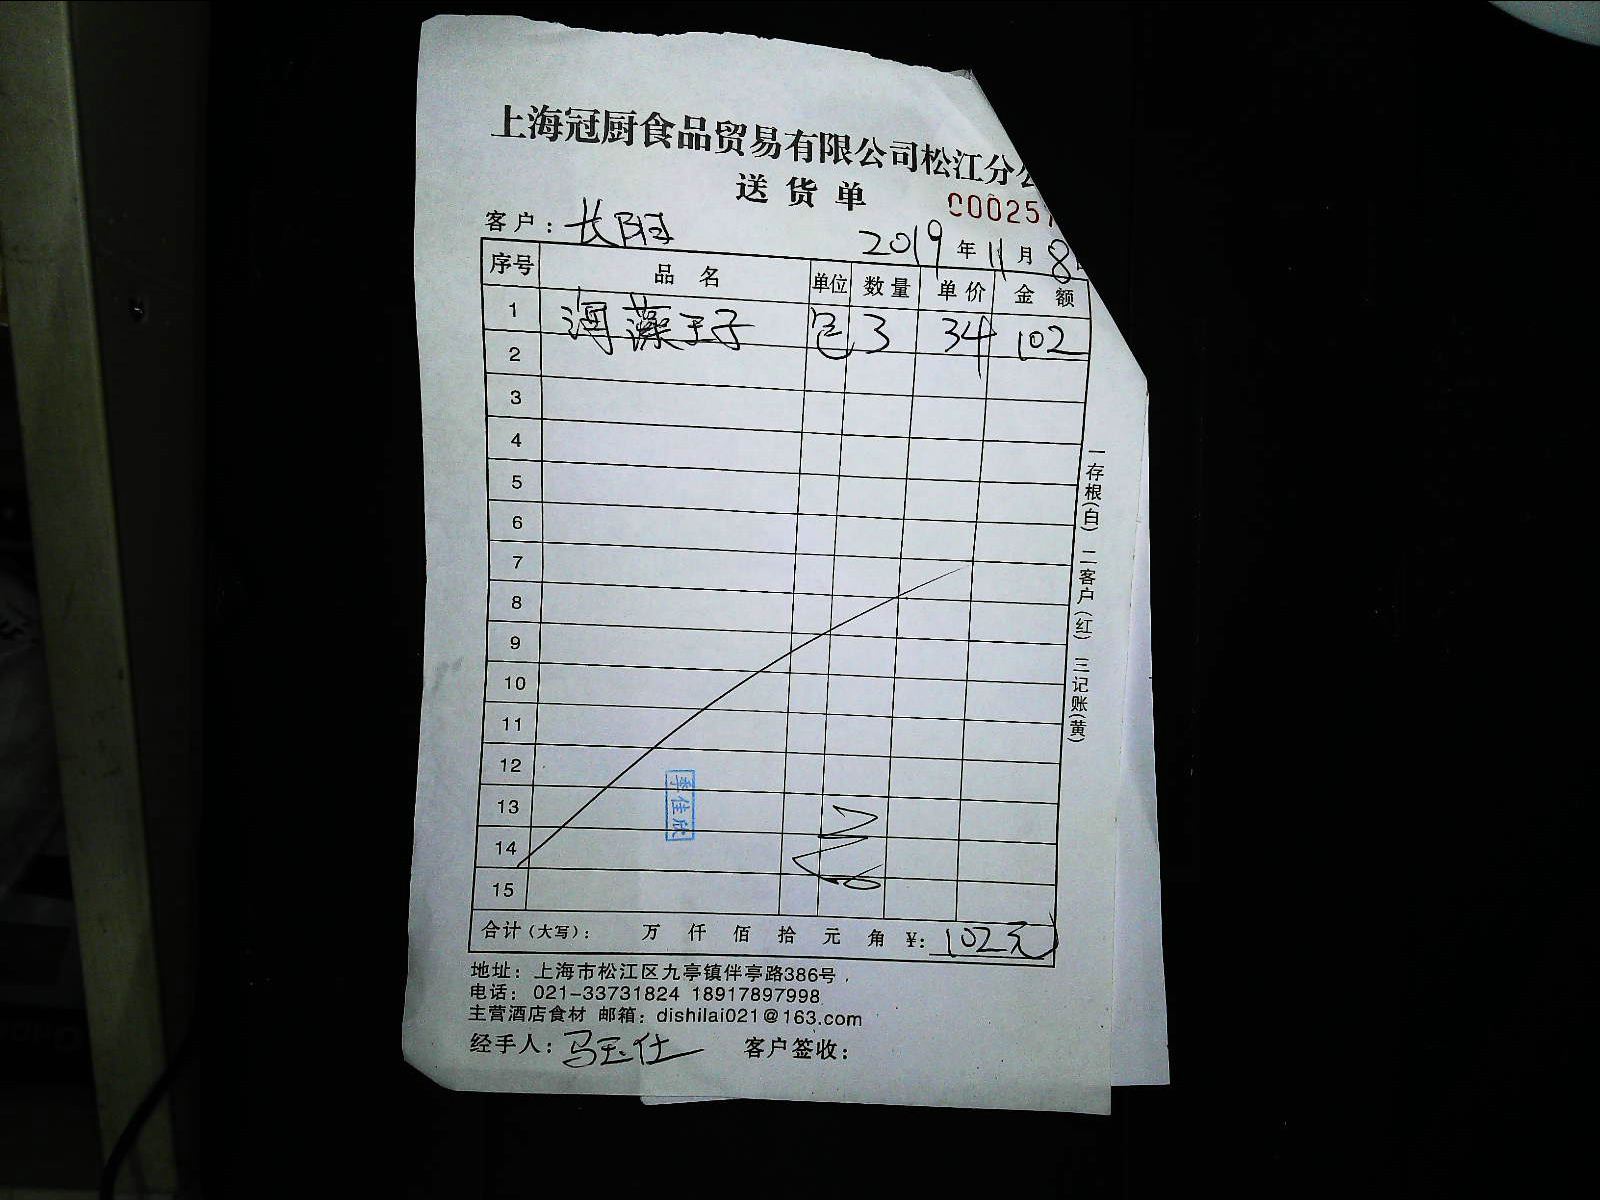 上海冠厨食品贸易有限公司松江分公
送货单
C00257
客户：长阳
2019年11月8日
序号 品名 单位 数量 单价 金额
1 海藻王子 包 3 34 102
2
3
4
5
6
7
8
9
10
11
12
13
14
15
李佳欣
合计（大写）： 万 仟 佰 拾 元 角 ¥：102元
地址：上海市松江区九亭镇伴亭路386号
电话：021-33731824 18917897998
主营酒店食材 邮箱：dishilai021@163.com
经手人：马玉仕 客户签收：
一存根（白） 二客户（红） 三记账（黄）